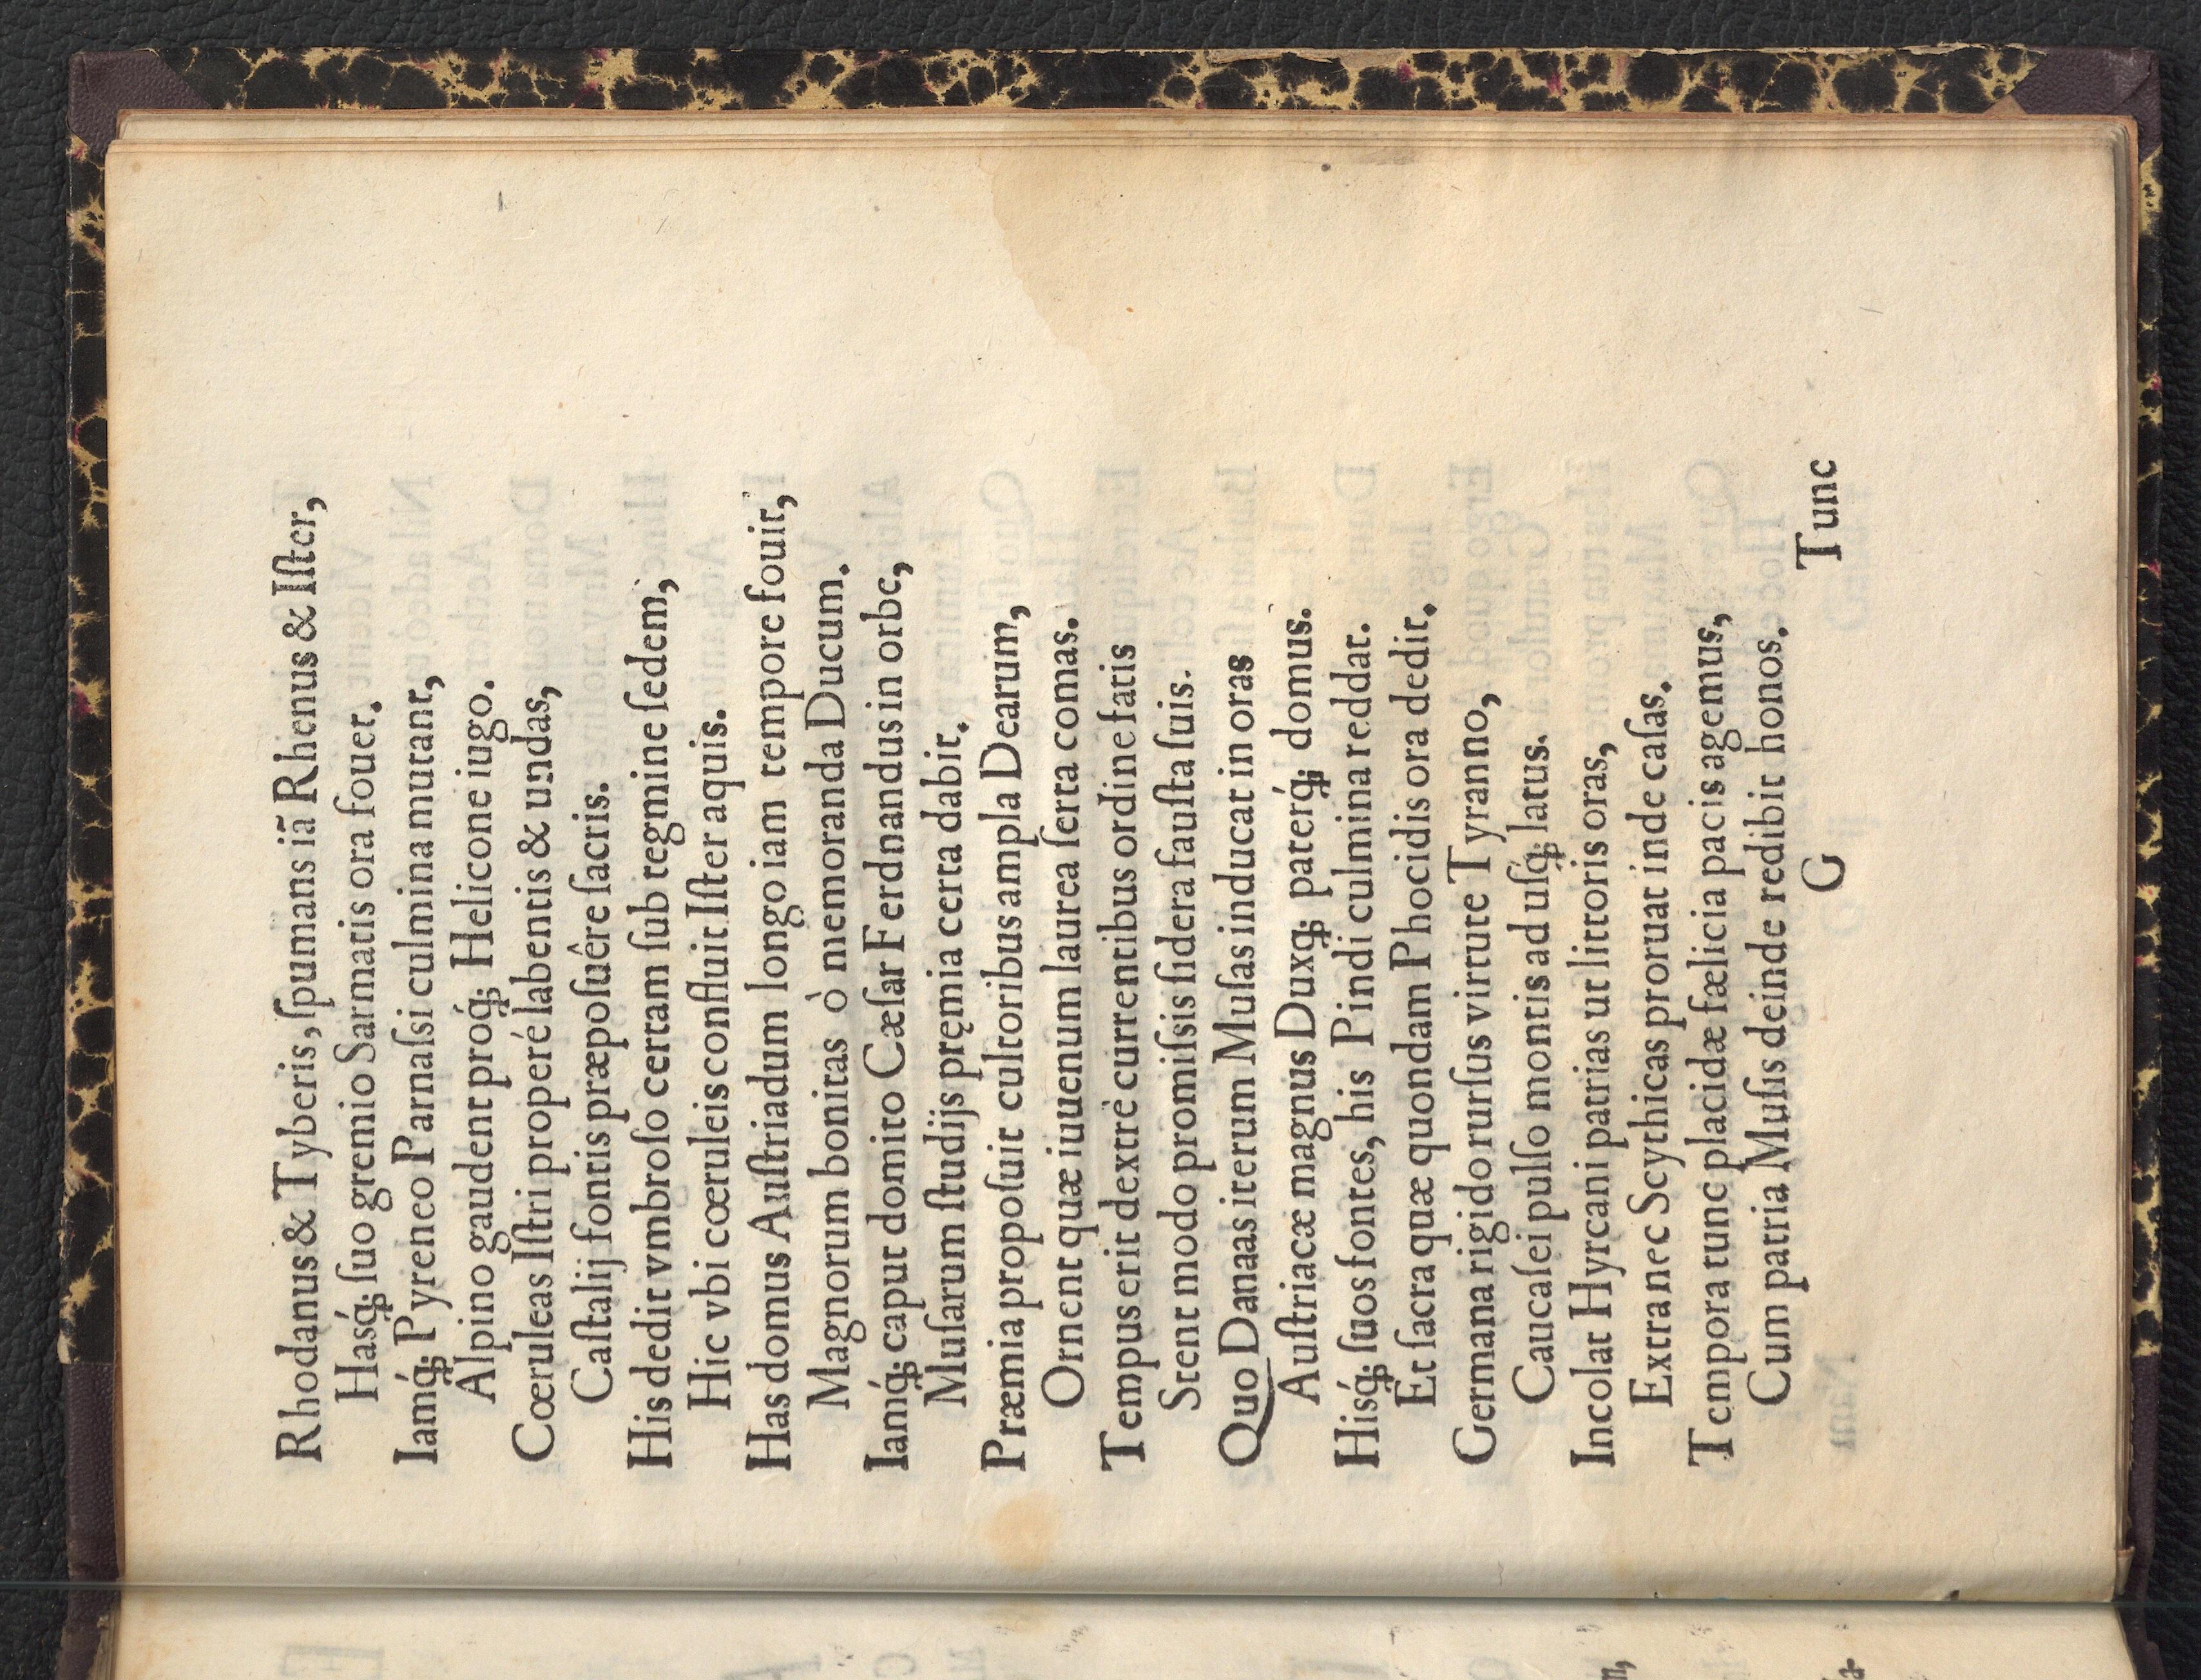 Rhodanus & Tyberis, ſpumans iã Rhenus & Iſter,
Hasq́; ſuo gremio Sarmatis ora fouet.
Iamq́; Pyreneo Parnaſsi culmina mutant,
Alpino gaudent proq́; Helicone iugo.
Cœruleas Iſtri properé labentis & undas,
Caſtalij fontis præpoſuêre ſacris.
His dedit vmbroſo certam ſub regmine ſedem,
Hic vbi cœruleis confluit Iſter aquis.
Has domus Auſtriadum longo iam tempore fouit,
Magnorum bonitas ò memoranda Ducum.
Iamq́; caput domito Cæſar Ferdnandus in orbe,
Muſarum ſtudijs pręmia certa dabit.
Præmia propoſuit cultoribus ampla Dearum,
Ornent quæ iuuenum laurea ſerta comas.
Tempus erit dextrè currentibus ordine fatis
Stent modo promiſsis ſidera fauſta ſuis.
Quo Danaas iterum Muſas inducat in oras
Auſtriacæ magnus Duxq; paterq́; domus.
Hisq́; ſuos fontes, his Pindi culmina reddat.
Et ſacra quæ quondam Phocidis ora dedit.
Germana rigido rurſus virtute Tyranno,
Caucaſei pulſo montis ad uſq́; latus.
Incolat Hyrcani patrias ut littoris oras,
Extra nec Scythicas proruat inde caſas.
Tempora tunc placidæ fælicia pacis agemus,
Cum patria Muſis deinde redibit honos.
G Tunc